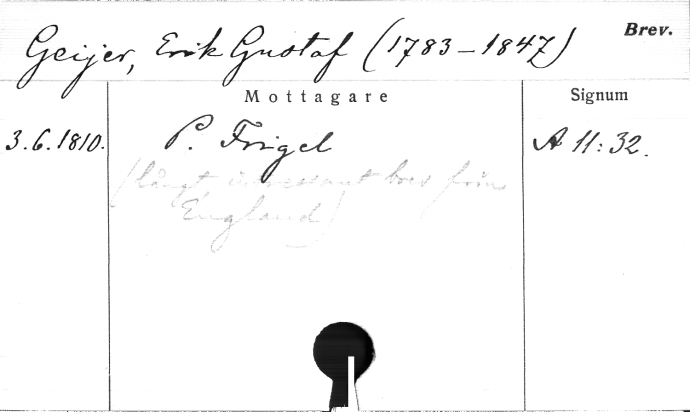 Geijer, Erik Gustaf (1783–1847) Brev.
Mottagare Signum
3.6.1810. P. Frigel A 11:32.
(långt, intressant brev från
England)